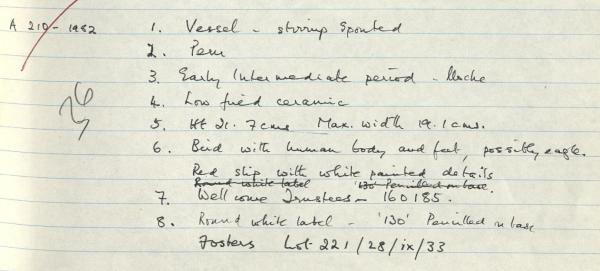 A 210 - 1982
1. Vessel - stirrup spouted
2. Peru
3. Early Intermediate period - Moche
4. Low fired ceramic
5. Ht 21.7cms Max. width 19.1cms.
6. Bird with human body and feet, possibly eagle.
Red slip with white painted details
Round white label '130' Pencilled on base.
7. Wellcome Trustees - 160185.
8. Round white label - '130' Pencilled on base
Fosters Lot 221/28/ix/33